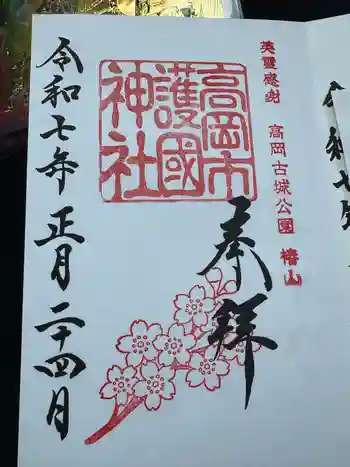 英霊感謝
高岡古城公園 椿山
高岡市
護國
神社
奉拝
令和七年 正月 二十四日